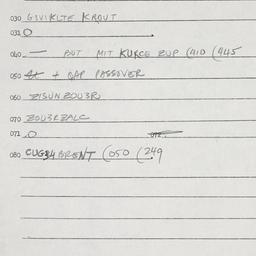 030 GIVIKLTE KROUT
031 O
040 — POT MIT KURCE ZUP (410 (445
050 + QAP PASSOVER
060 ZISUNZOU3R
070 ZOU3RZALC
071 .O 072
080 CUG34BRENT (050 (249